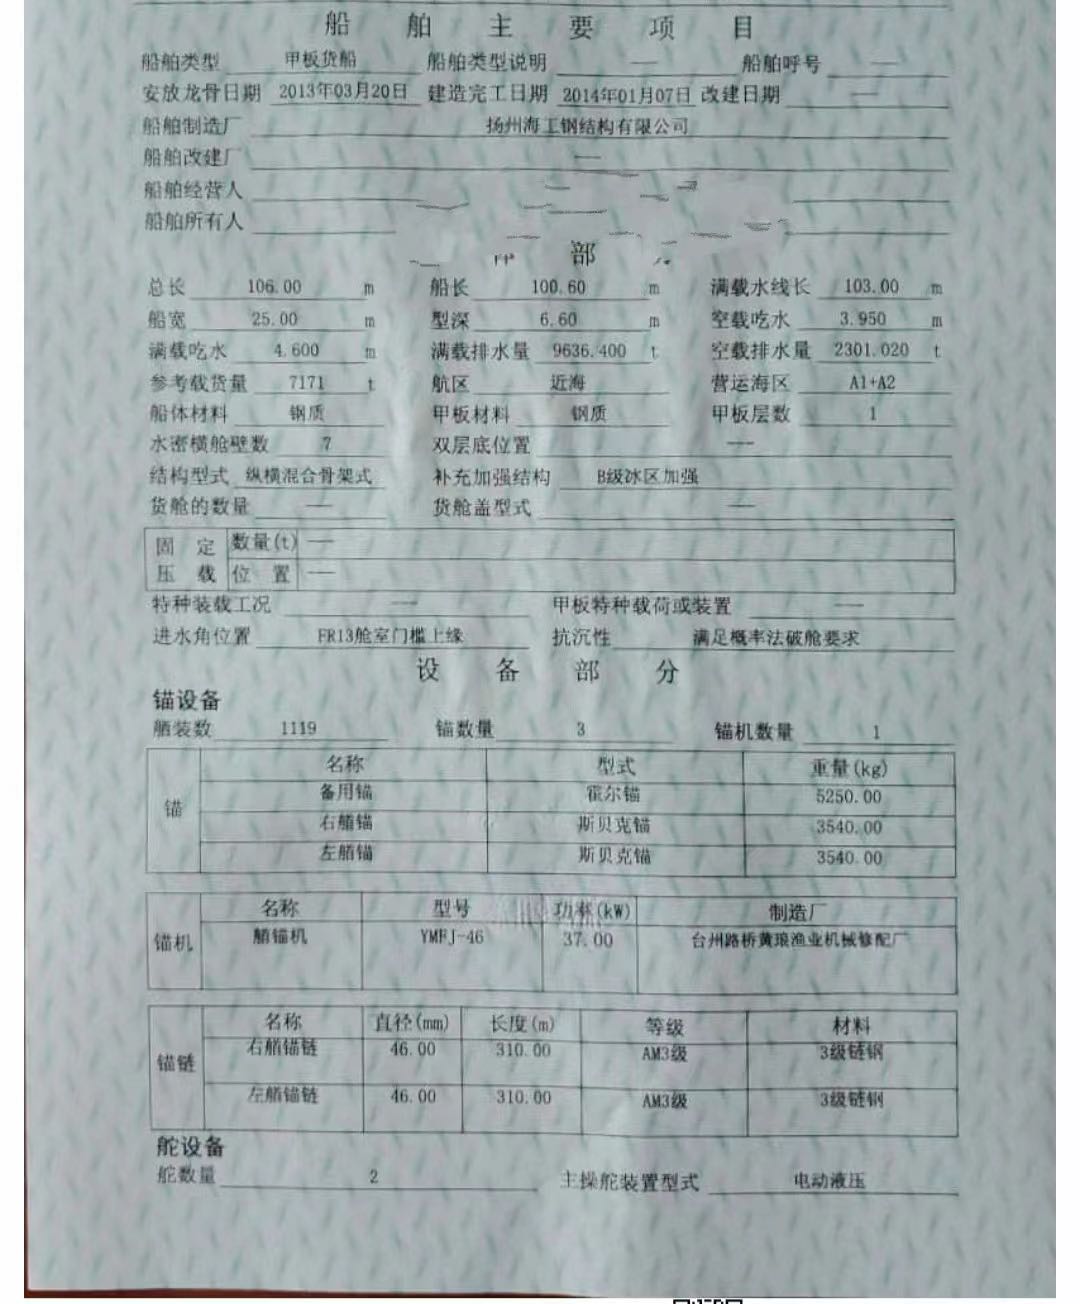 船舶主要项目
船舶类型 甲板货船 船舶类型说明 — 船舶呼号 —
安放龙骨日期 2013年03月20日 建造完工日期 2014年01月07日 改建日期 —
船舶制造厂 扬州海工钢结构有限公司
船舶改建厂 —
船舶经营人
船舶所有人
部
总长 106.00 m 船长 100.60 m 满载水线长 103.00 m
船宽 25.00 m 型深 6.60 m 空载吃水 3.950 m
满载吃水 4.600 m 满载排水量 9636.400 t 空载排水量 2301.020 t
参考载货量 7171 t 航区 近海 营运海区 A1+A2
船体材料 钢质 甲板材料 钢质 甲板层数 1
水密横舱壁数 7 双层底位置 —
结构型式 纵横混合骨架式 补充加强结构 B级冰区加强
货舱的数量 — 货舱盖型式 —
固定 数量(t) —
压载 位置 —
特种装载工况 — 甲板特种载荷或装置 —
进水角位置 FR13舱室门槛上缘 抗沉性 满足概率法破舱要求
设备部分
锚设备
舾装数 1119 锚数量 3 锚机数量 1
名称 型式 重量(kg)
锚
备用锚 霍尔锚 5250.00
右艏锚 斯贝克锚 3540.00
左艏锚 斯贝克锚 3540.00
名称 型号 功率(kW) 制造厂
锚机 艏锚机 YMFJ-46 37.00 台州路桥黄琅渔业机械修配厂
名称 直径(mm) 长度(m) 等级 材料
锚链
右艏锚链 46.00 310.00 AM3级 3级链钢
左艏锚链 46.00 310.00 AM3级 3级链钢
舵设备
舵数量 2 主操舵装置型式 电动液压